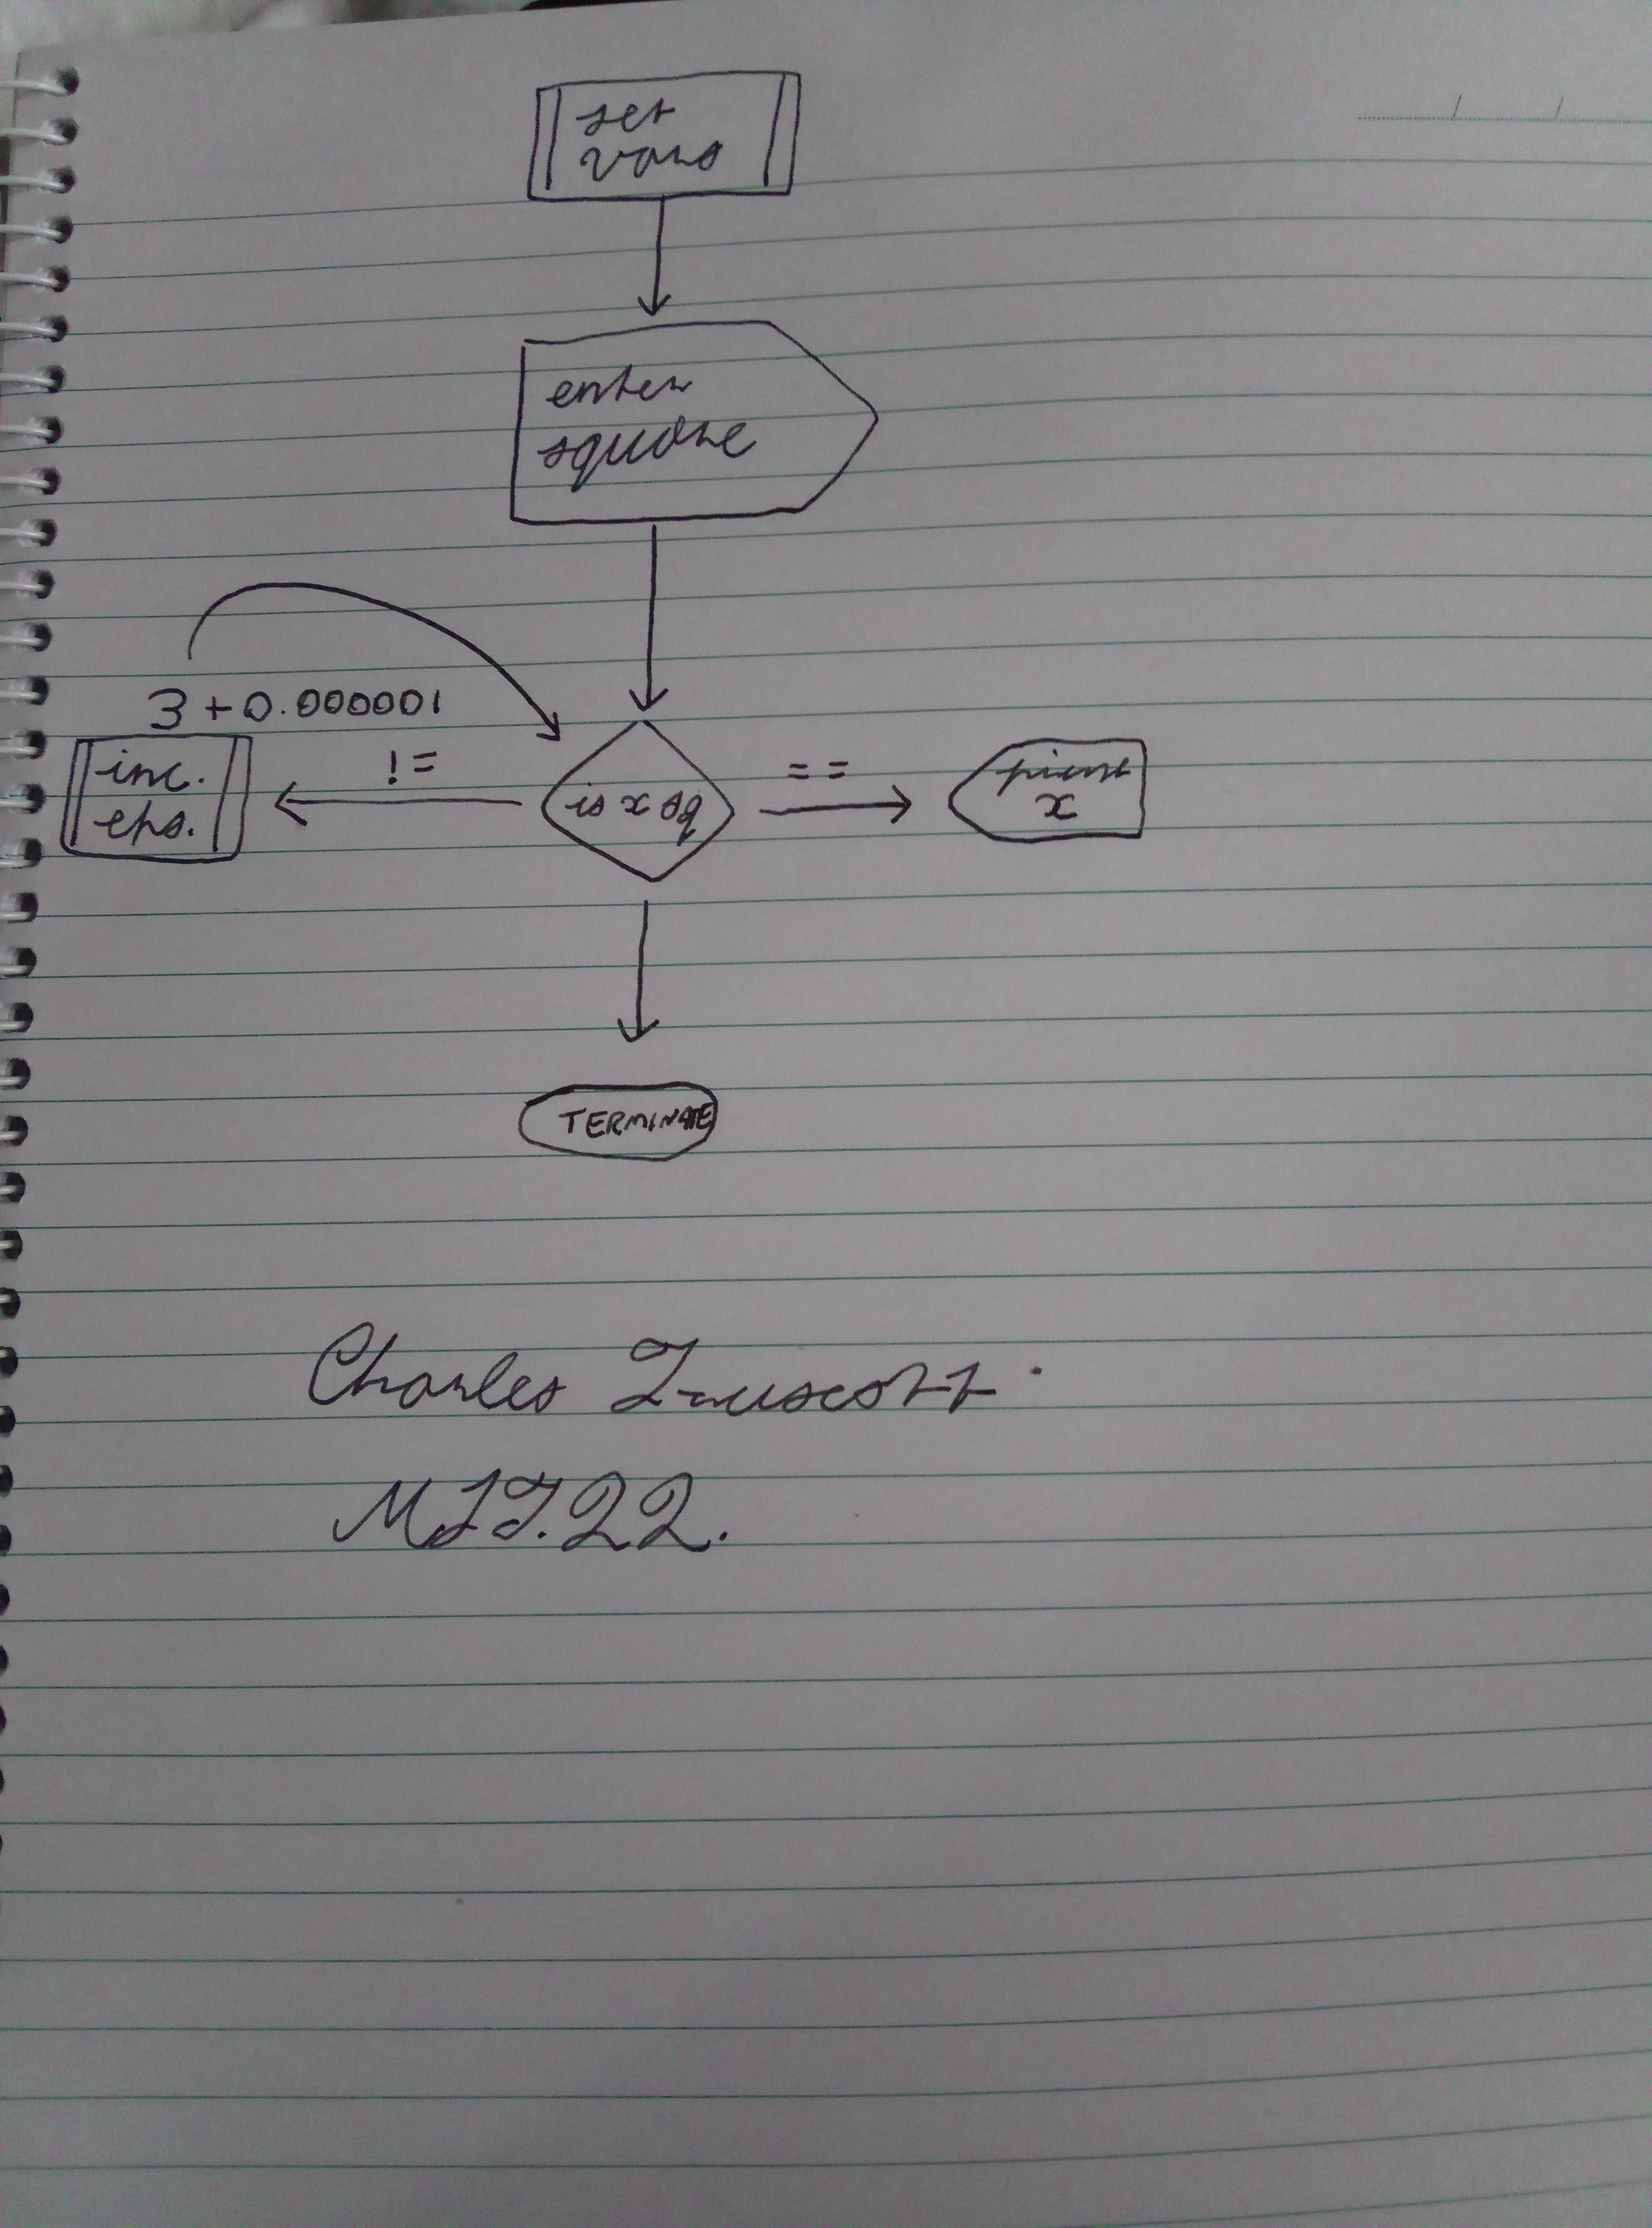 set
vars
enter
square
3 + 0.000001
inc.
eps.
!=
is x sq
==
print
x
TERMINATE
Charles Truscott.
MIT.22.